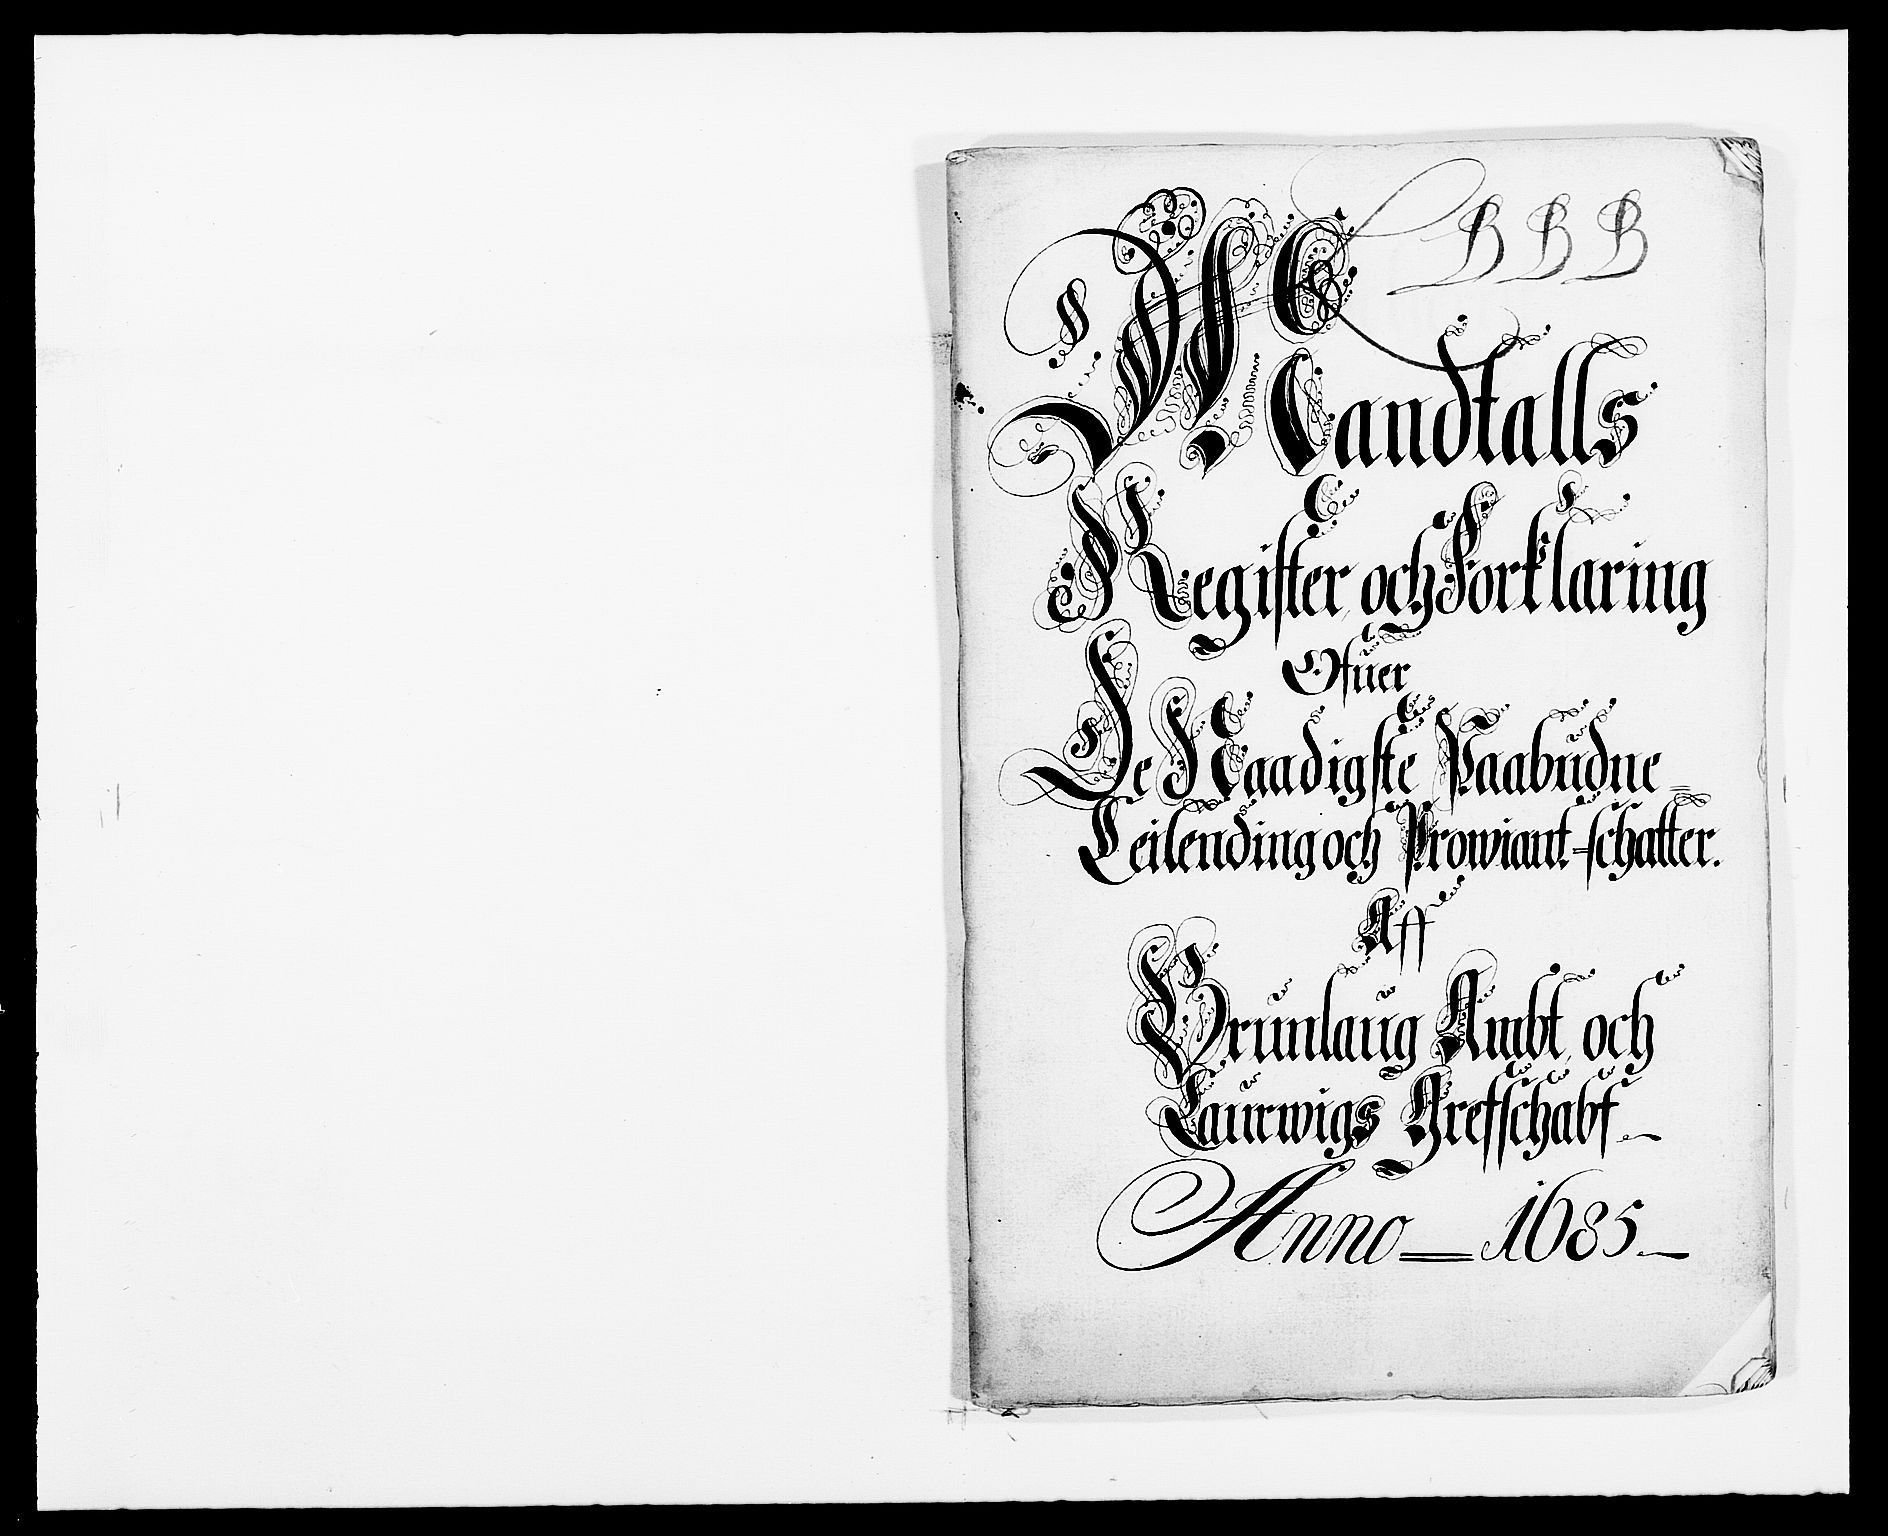 BBB
Mandtalls
Register, och Forklaring
Ofuer
De Naadigste Paabudne=
Leilending och Prowiant-schatter.
Aff
Brunlaug Ambt, och
Laurwigs Grefschabf
Anno 1685